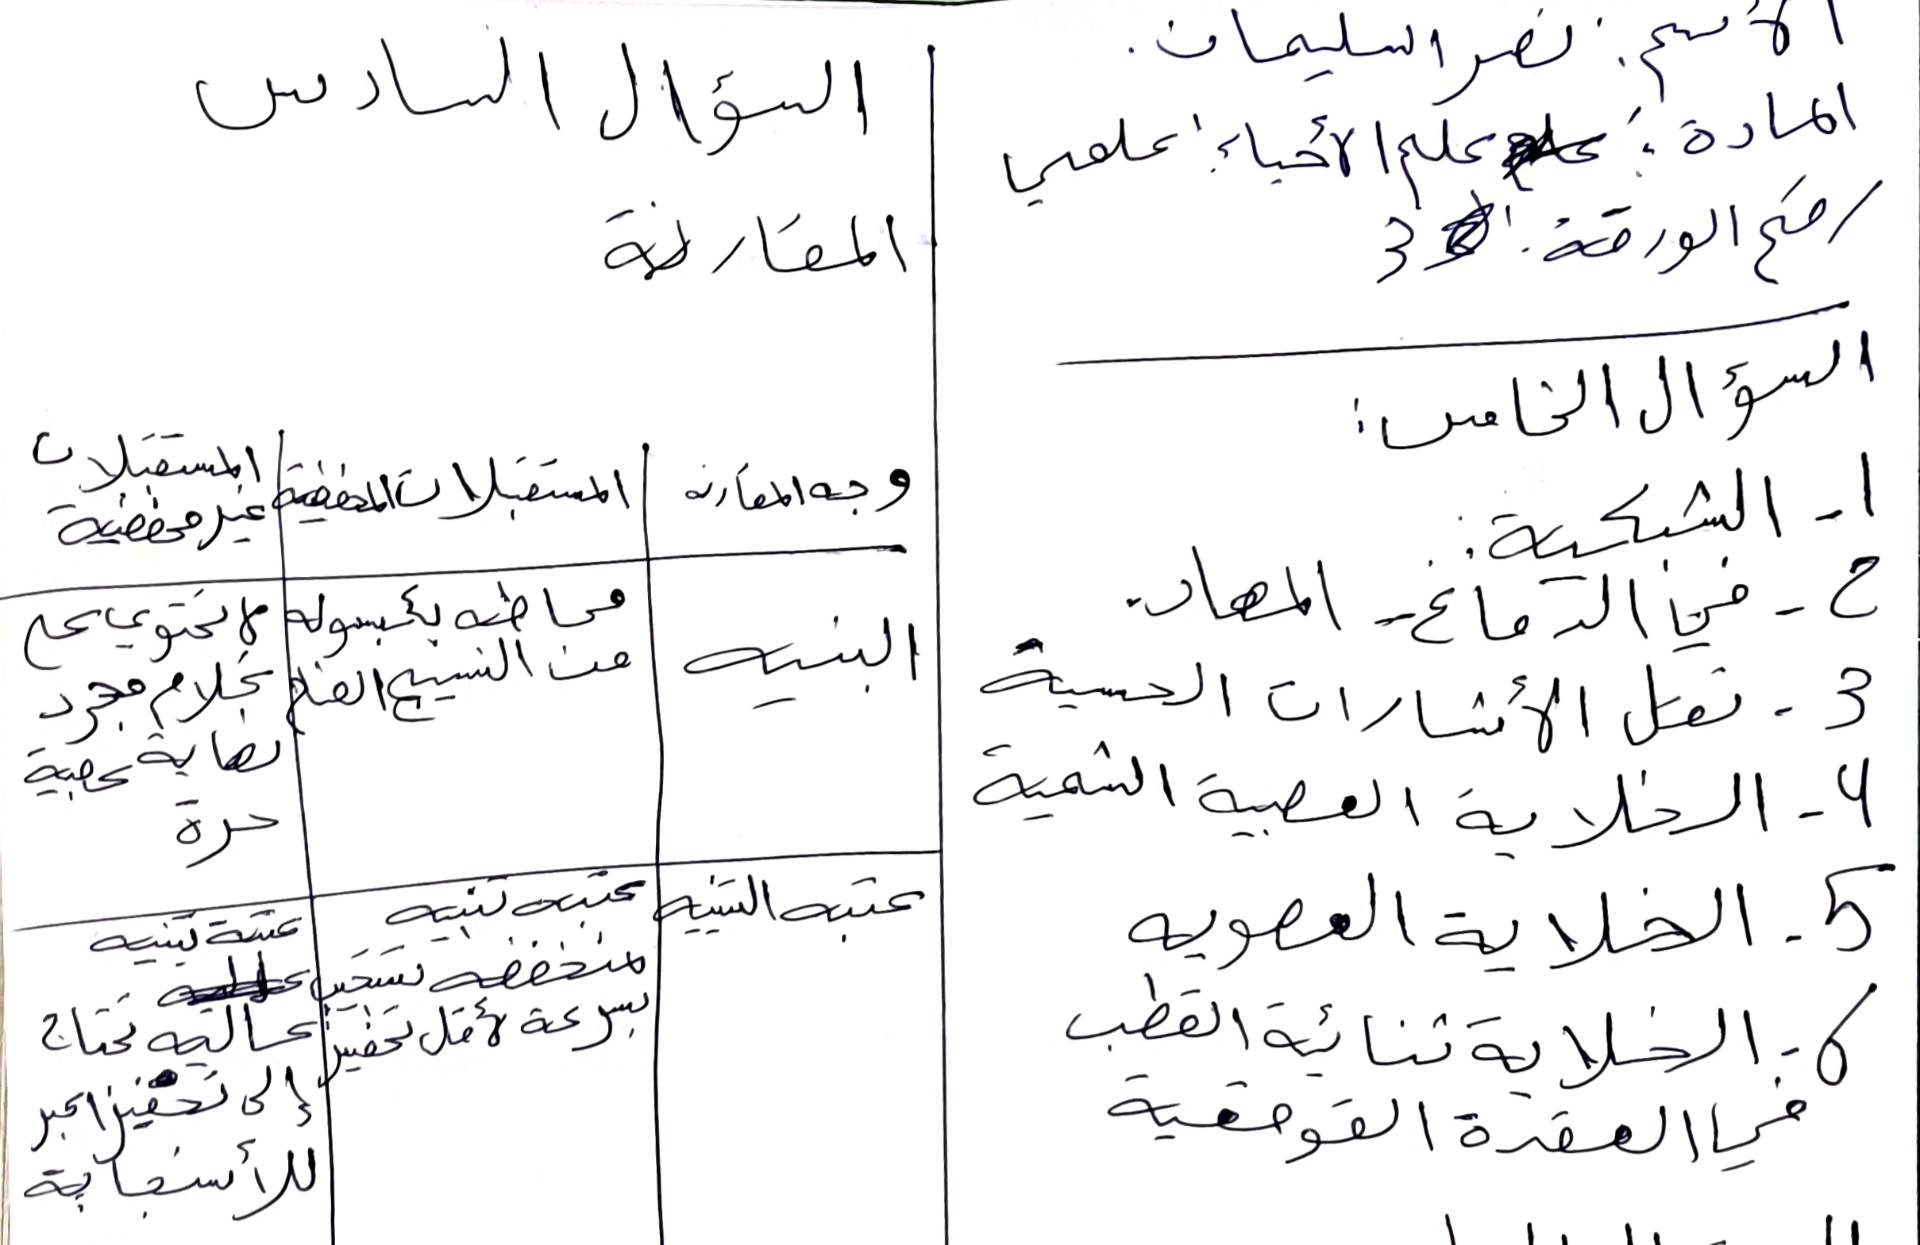 الأسم: نصر السليمان.
المادة: علم الأحياء: علمي
رقم الورقة: 3
السؤال الخامس:
1- الشبكية:
2- في الدماغ - المهاد.
3- نقل الأشارات الحسية
4- الخلاية العصبية الشمية
5- الخلاية العصويه
6- الخلاية ثنائية القطب
في العقدة القوقعية
السؤال السادس
المقارنة
وجه المقارنه
المستقبلات المحفظية
المستقبلات
غير محفظية
البنيه
محاطه بكبسوله
من النسيج الضام
لا تحتوي على
مجرد
نهاية عصبية
حرة
عتبه التنبيه
عتبه تنبيه
منخفضه تستجيب
بسرعة لأقل تحفيز
عتبة تنبيه
عاليه تحتاج
إلى تحفيز اكبر
للأستجابة